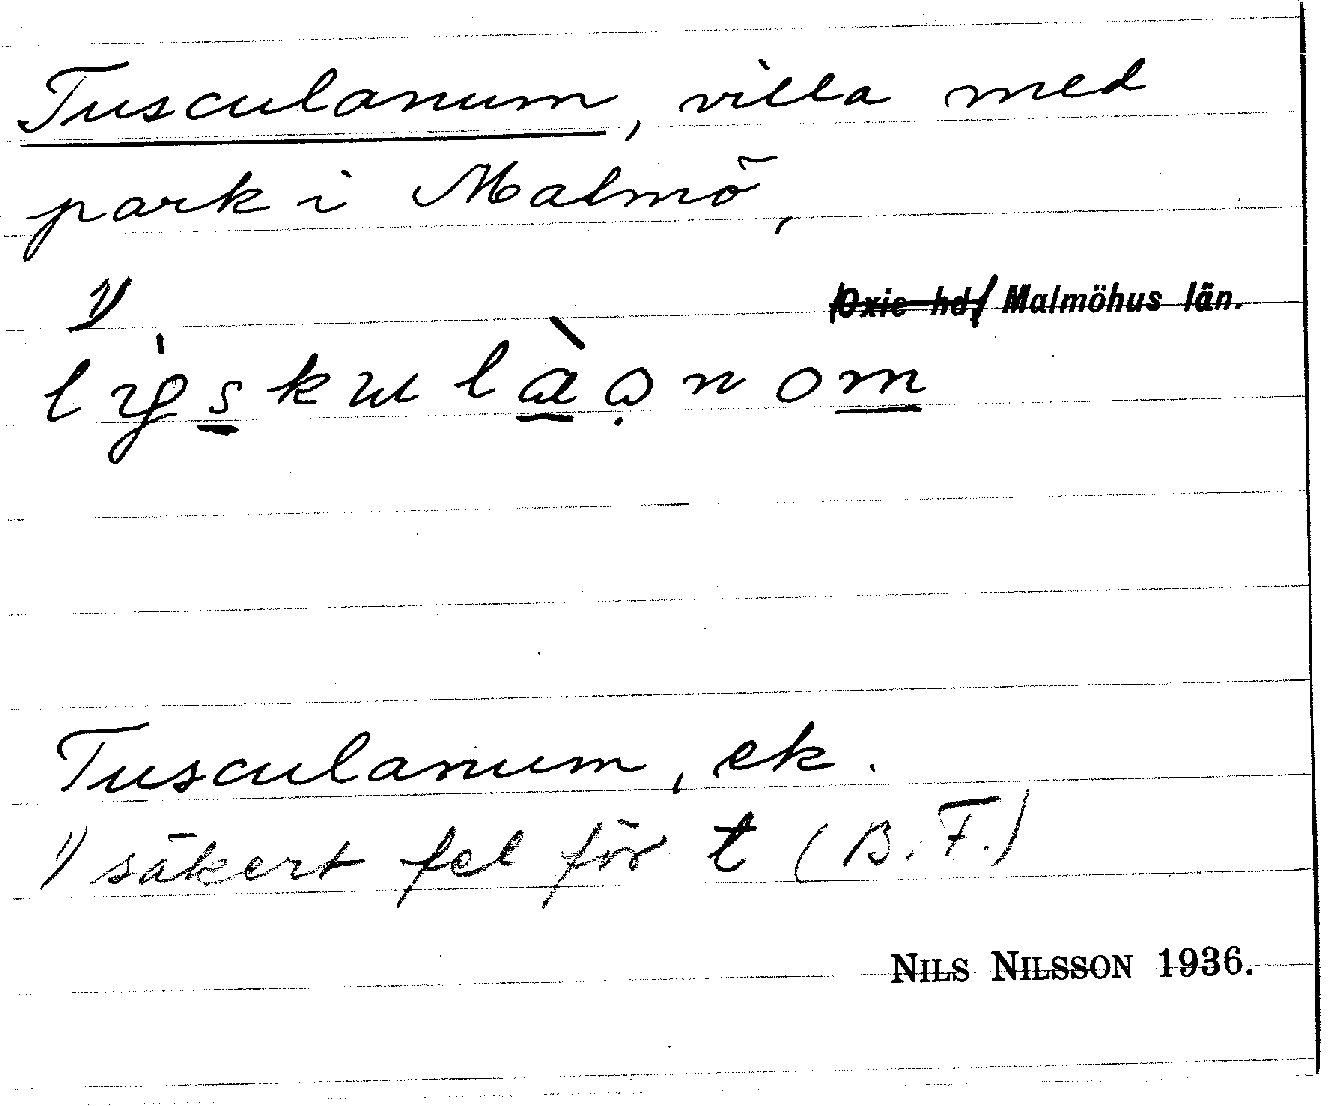 Tusculanum, villa med
park i Malmö,
Oxie hd, Malmöhus län.
1)
Tusculanum, ek.
1) säkert fel för t (B. F.)
NILS NILSSON 1936.